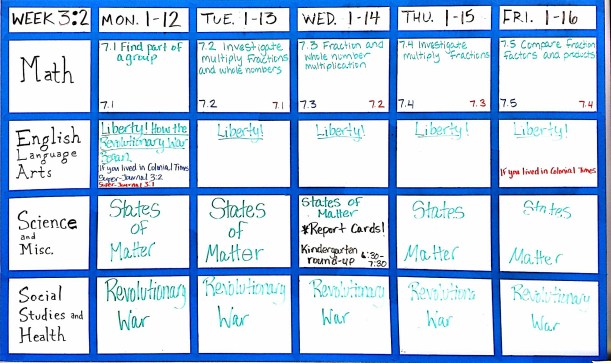 WEEK 3:2
MON. 1-12
TUE. 1-13
WED. 1-14
THU. 1-15
FRI. 1-16
Math
7.1 Find part of
a group
7.1
7.2 Investigate
multiply fractions
and whole numbers
7.2 7.1
7.3 Fraction and
whole number
multiplication
7.3 7.2
7.4 Investigate
multiply fractions
7.4 7.3
7.5 Compare fraction
factors and products
7.5 7.4
English
Language
Arts
Liberty! How the
Revolutionary War
Began
If you lived in Colonial Times
Super-Journal 3:2
Super-Journal 3:1
Liberty!
Liberty!
Liberty!
Liberty!
If you lived in Colonial Times
Science
and
Misc.
States
of
Matter
States
of
Matter
States of
Matter
*Report Cards!
Kindergarten
round-up 6:30-
7:30
States
Matter
States
Matter
Social
Studies and
Health
Revolutionary
War
Revolutionary
War
Revolutionary
War
Revolutionary
War
Revolutionary
War